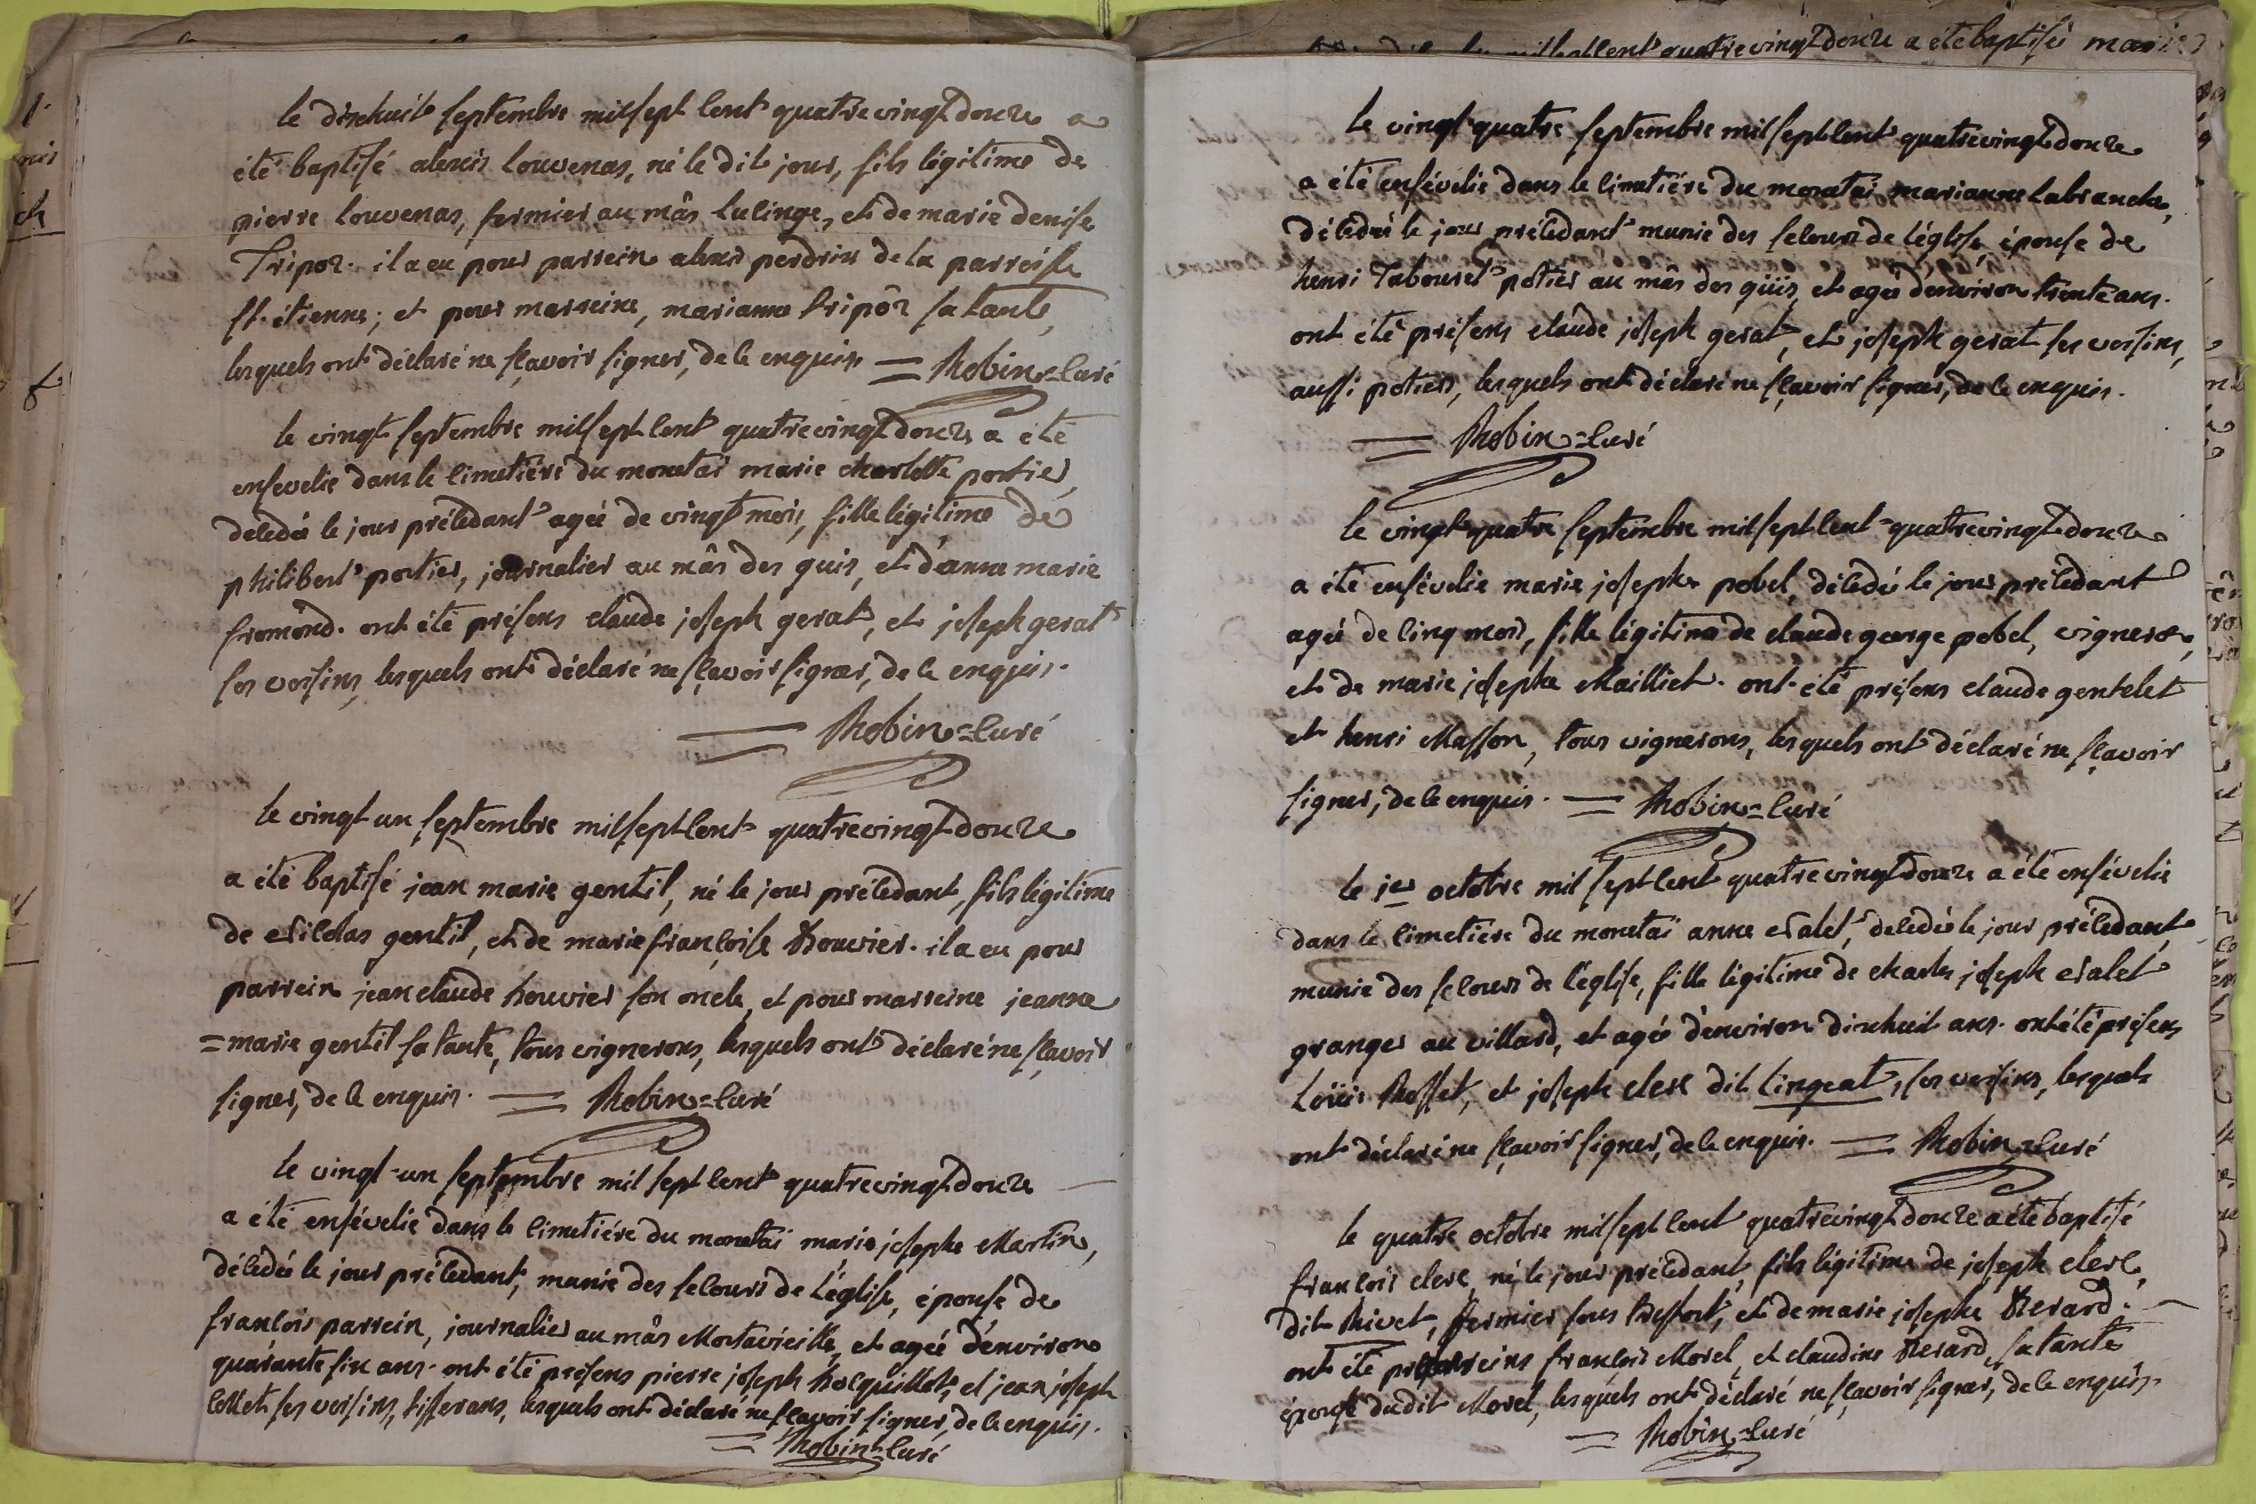 le dixhuit septembre mil sept cent quatrevingt douze a
été baptisé alexis Couvenas, né le dit jour, fils légitime de
pierre Couvenas, fermier au mâs tulinge, et de marie denise
Tripoz. il a eu pour parrein alexis perdrix de la parroisse
st. étienne; et pour marreine, marianne tripôz sa tante,
lesquels ont déclaré ne sçavoir signer, de ce enquis = Robin = Curé
le vingt septembre mil sept cent quatrevingt douze a été
ensevelie dans le cimetiére du monetai marie charlotte portier,
decedée le jour précedant agée de vingt mois, fille légitime de
philibert portier, journalier au mâs des guis, et d'anne marie
fromond. ont été présens claude joseph gerat, et joseph gerat
ses voisins, lesquels ont déclaré ne sçavoir signer, de ce enquis.
= Robin = Curé
le vingt un septembre mil sept cent quatrevingt douze
a été baptisé jean marie gentil, né le jour précedant, fils légitime
de Nicolas gentil, et de marie françoise Bouvier. il a eu pour
parrein jean claude bouvier son oncle, et pour marreine jeanne
= marie gentil sa tante, tous vignerons, lesquels ont déclaré ne sçavoir
signer, de ce enquis. = Robin = Curé
le vingt-un septembre mil sept cent quatrevingt douze
a été ensévelie dans le cimetiére du monetai marie josephe Martin,
décédée le jour précedant, munie des secours de l'église, épouse de
françois parrein, journalier au mâs Montavieille, et agée d'environ
quarante six ans. ont été présens pierre joseph bocquillot, et jean joseph
Collet ses voisins, tisserans, lesquels ont déclaré ne sçavoir signer, de ce enquis.
= Robin = Curé
quatrevingt douze a été baptisé
le vingt quatre septembre mil sept cent quatrevingt douze
a été ensévelie dans le cimetiére du monetai marianne Labranche,
décédée le jour précedant munie des secours de l'église, épouse de
henri Tabouret potier au mâs des guis, et agée d'environ trente ans.
ont été présens claude joseph gerat, et joseph gerat ses voisins,
aussi potiers, lesquels ont déclaré ne sçavoir signer, de ce enquis.
= Robin = Curé
le vingt quatre septembre mil sept cent quatrevingt douze
a été ensévelie marie josephe pobel, décédée le jour précedant
agée de cinq mois, fille légitime de claude george pobel, vigneron,
et de marie josephe Mailliet. ont été présens claude gentelet
et henri Masson, tous vignerons, lesquels ont déclaré ne sçavoir
signer, de ce enquis. = Robin = Curé
le 1er octobre mil sept cent quatrevingt douze a été ensévelie
dans le cimetiére du monetai anne Nalet, decedée le jour précedant,
munie des secours de l'église, fille légitime de charles joseph Nalet
granger au villard, et agée d'environ dixhuit ans. ont été présens
Loüis Rosset, et joseph clerc dit Cingeat, ses voisins, lesquels
ont déclaré ne sçavoir signer, de ce enquis. = Robin = Curé
le quatre octobre mil sept cent quatrevingt douze a été baptisé
françois clerc, né le jour précedant, fils légitime de joseph clerc,
dit hivet, fermier sous tressort, et de marie josephe Berard.
ont été parreins françois Morel, et claudine Berard, sa tante
épouse dudit Morel, lesquels ont déclaré ne sçavoir signer, de ce enquis.
= Robin = Curé